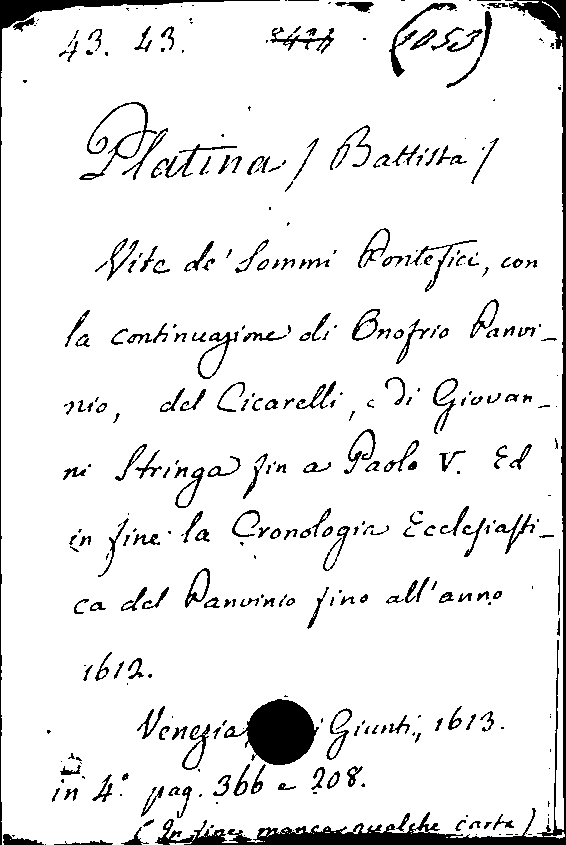 43. 43. 8424 (1053)
Platina / Battista /
Vite de' Sommi Pontefici, con
la continuazione di Onofrio Panvi-
nio, del Cicarelli, e di Giovan-
ni Stringa fin a Paolo V. Ed
in fine la Cronologia Ecclesiasti-
ca del Panvinio fino all'anno
1612.
Venezia i Giunti, 1613.
in 4.° pag. 366 e 208.
(In fine manca qualche carta)